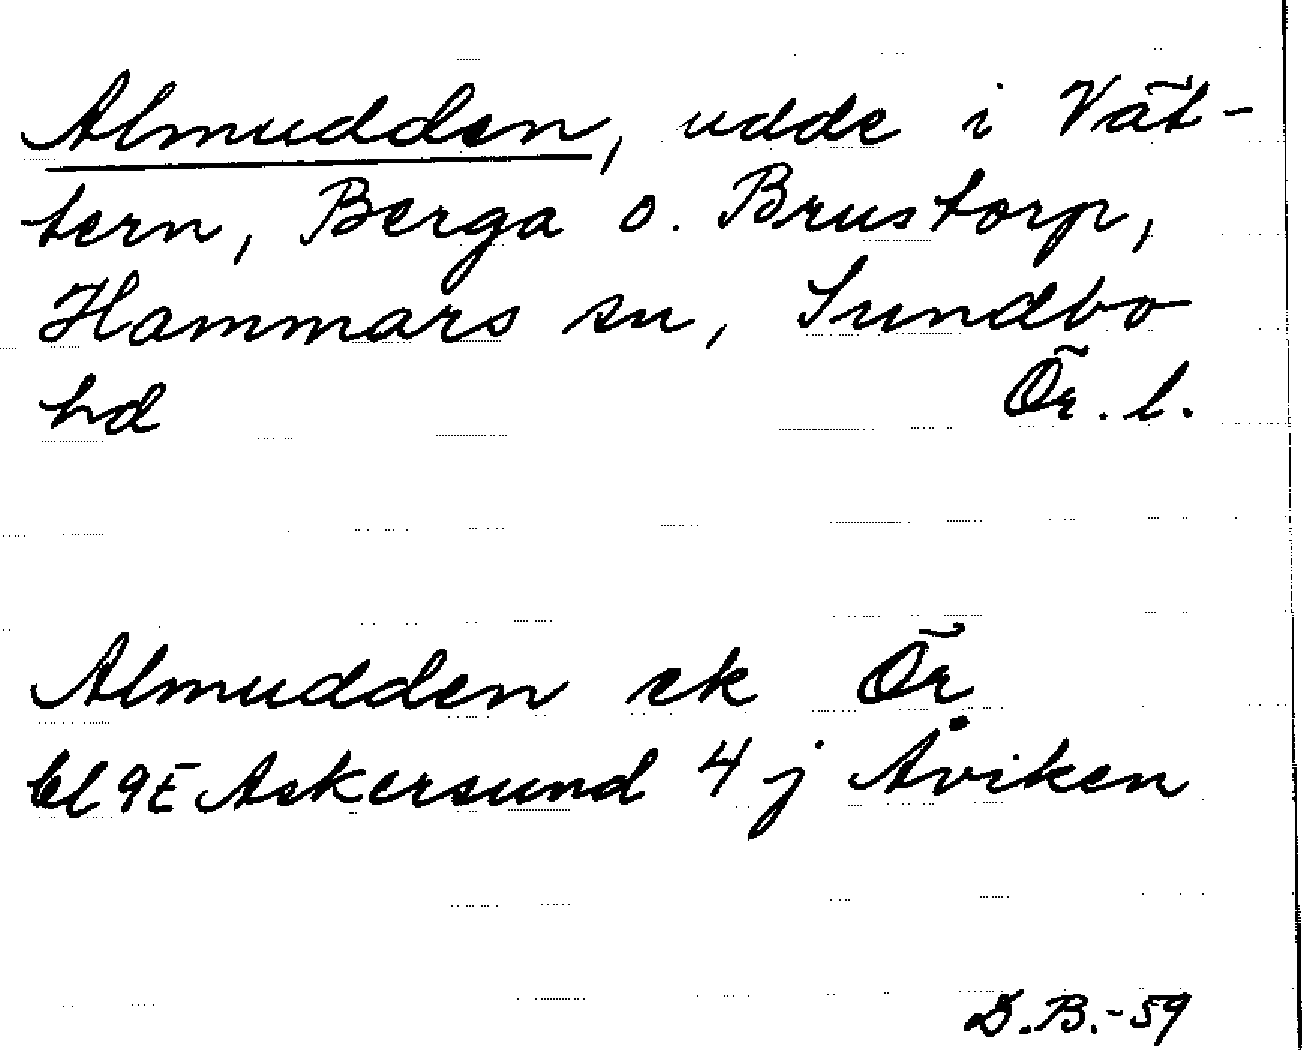 Almudden, udde i Vät-
tern, Berga o. Brustorp,
Hammars sn, Sundbo
hd Ör. l.
Almudden ek Ör
bl 9E Askersund 4 j Åviken
D.B.-59